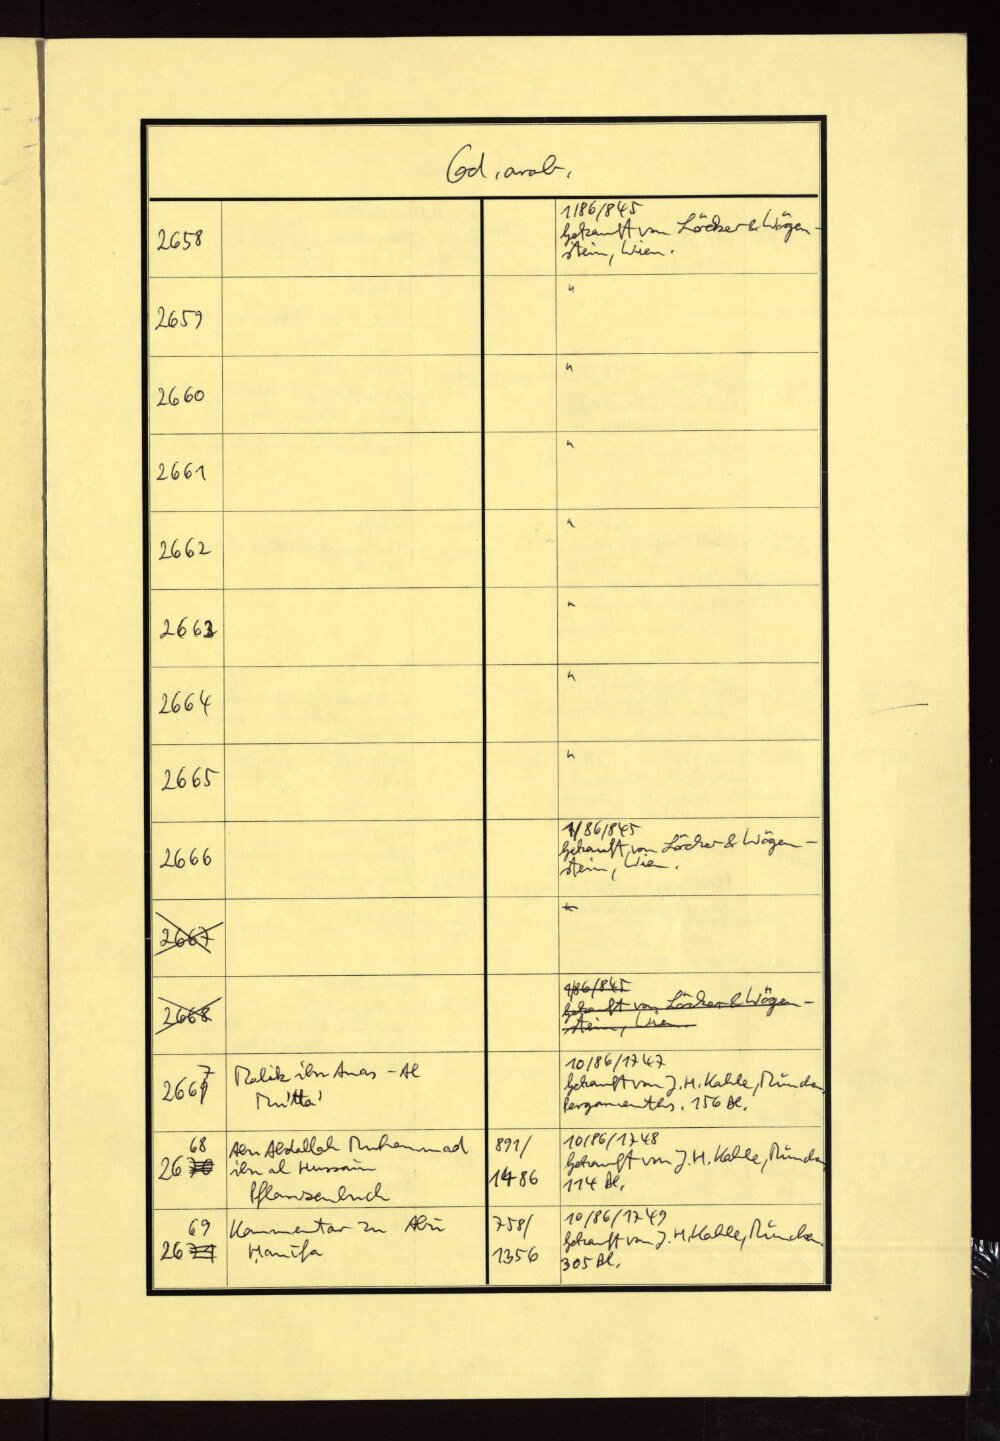 Cod. arab.
2658
1/86/845
gekauft von Löcker & Wögen-
stein, Wien.
2659
"
2660
"
2661
"
2662
"
2663
"
2664
"
2665
"
2666
1/86/845
gekauft von Löcker & Wögen-
stein, Wien.
2667
"
2668
1/86/845
gekauft von Löcker & Wögen-
stein, Wien.
2667
Malik ibn Anas - Al
Mu'tta'
10/86/1747
gekauft von J. H. Kahle, München
Pergamenths. 156 Bl.
68
26
Abu Abdallah Muhammad
ibn al Hussain
Pflanzenbuch
891/
1486
10/86/1748
gekauft von J. H. Kahle, München
114 Bl.
69
2671
Kommentar zu Abu
Hanifa
758/
1356
10/86/1749
gekauft von J. H. Kahle, München
305 Bl.